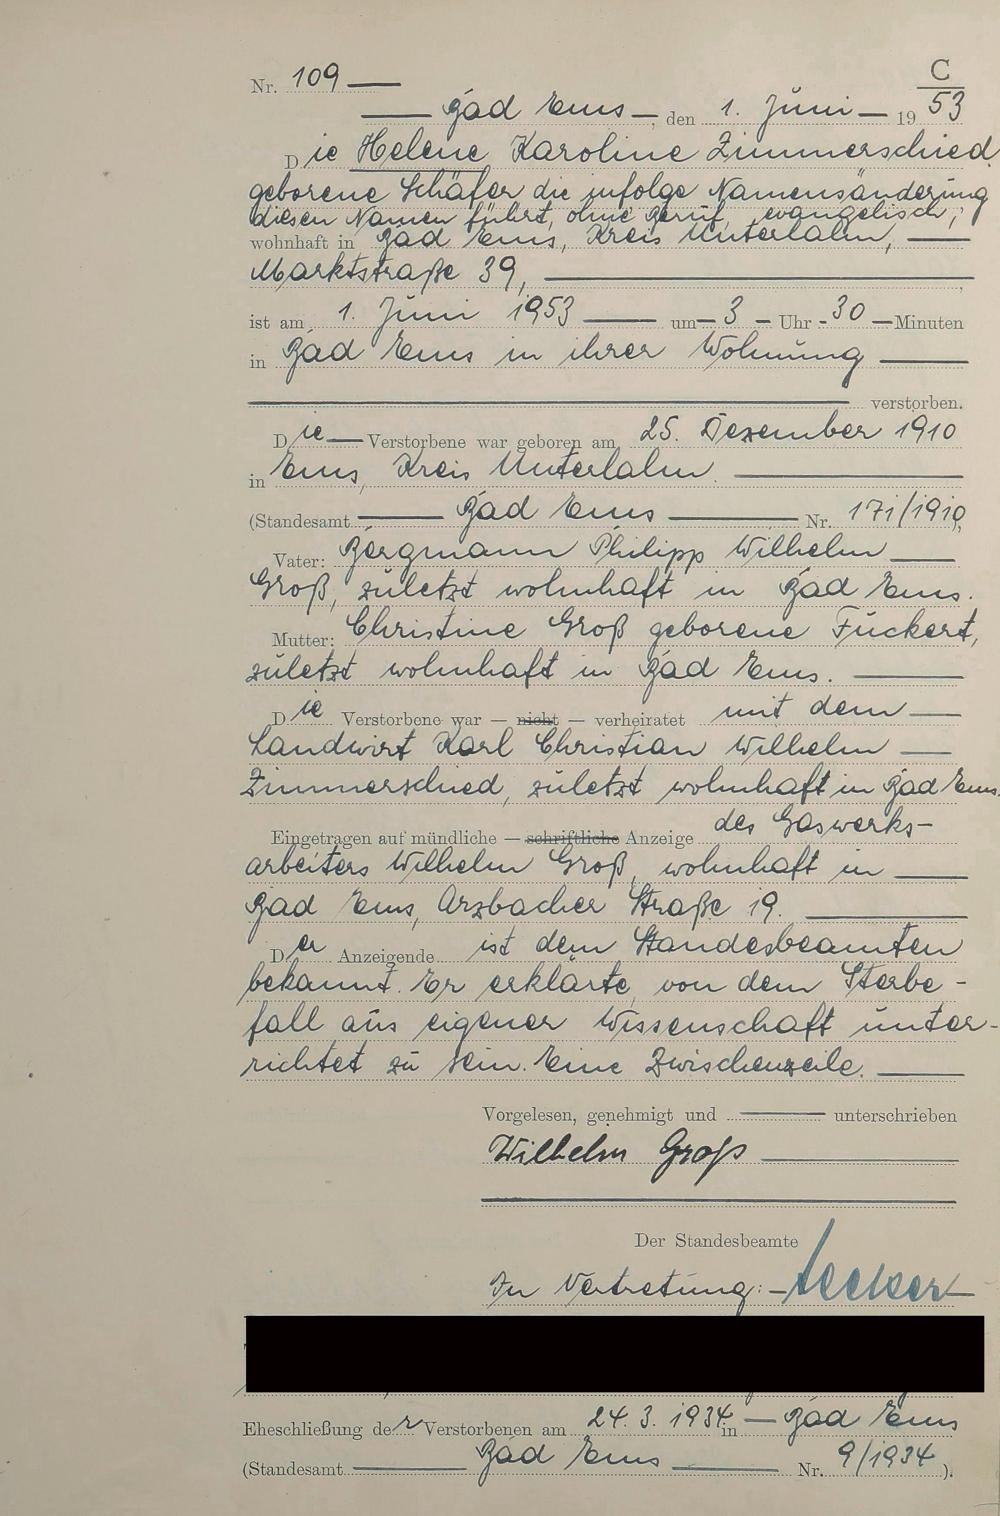 C
Nr. 109
Bad Ems, den 1. Juni 19 53
Die Helene Karoline Zimmerschied
geborene Schäfer die infolge Namensänderung
diesen Namen führt, ohne Beruf, evangelisch,
wohnhaft in Bad Ems, Kreis Unterlahn,
Marktstraße 39,
ist am 1. Juni 1953 um 3 Uhr 30 Minuten
in Bad Ems in ihrer Wohnung
verstorben.
Die Verstorbene war geboren am 25. Dezember 1910
in Ems, Kreis Unterlahn.
(Standesamt Bad Ems Nr. 171/1910)
Vater: Bergmann Philipp Wilhelm
Groß, zuletzt wohnhaft in Bad Ems.
Mutter: Christine Groß geborene Fuckert,
zuletzt wohnhaft in Bad Ems.
Die Verstorbene war — nicht — verheiratet mit dem
Landwirt Karl Christian Wilhelm
Zimmerschied, zuletzt wohnhaft in Bad Ems.
Eingetragen auf mündliche — schriftliche Anzeige des Gaswerks-
arbeiters Wilhelm Groß, wohnhaft in
Bad Ems, Arzbacher Straße 19.
Der Anzeigende ist dem Standesbeamten
bekannt. Er erklärte, von dem Sterbe-
fall aus eigener Wissenschaft unter-
richtet zu sein. Eine Zwischenzeile.
Vorgelesen, genehmigt und unterschrieben
Wilhelm Groß
Der Standesbeamte
In Vertretung:
Eheschließung der Verstorbenen am 24. 3. 1934 in Bad Ems
(Standesamt Bad Ems Nr. 9/1934).